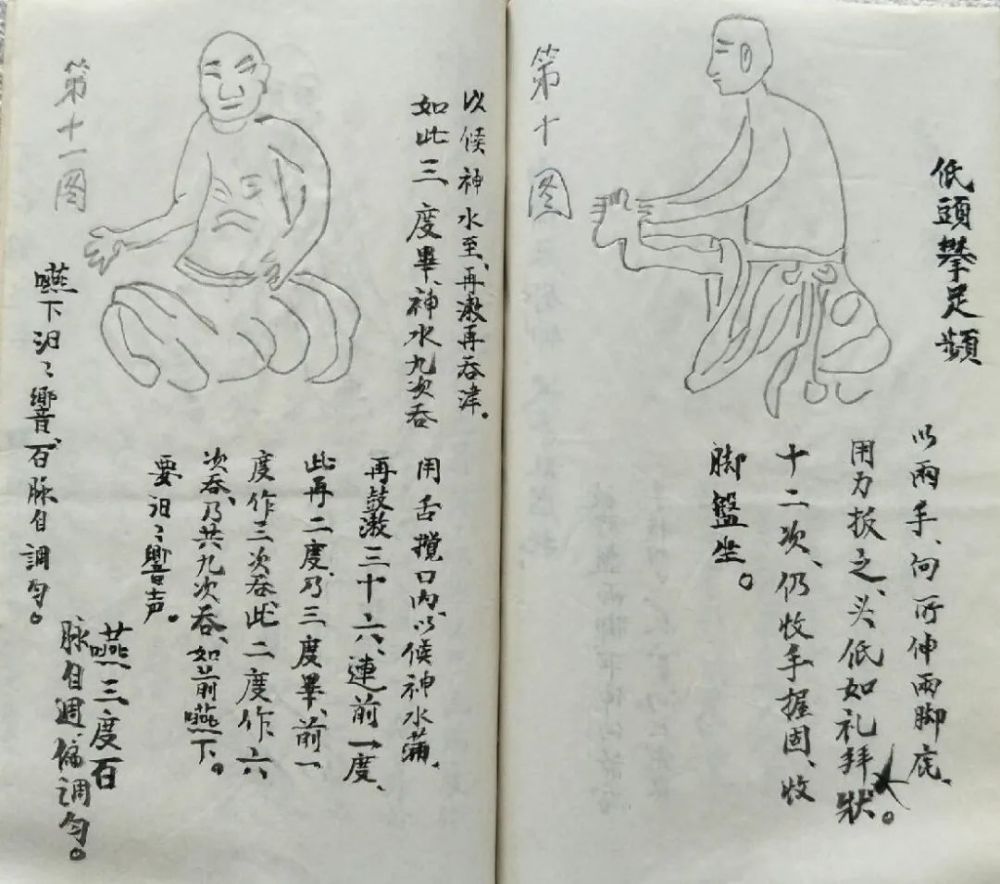 第十图
低頭攀足頻
以兩手、向所伸兩脚底、
用力扳之、头低如礼拜狀。
十二次、仍收手握固、收
脚盤坐。
第十一图
以候神水至、再漱再吞津。
如此三度畢、神水九次吞
用舌攪口内、以候神水蒲、
再鼓漱三十六、連前一度、
此再二度、乃三度畢、前一
度作三次吞、此二度作六
次吞、乃共九次吞、如前嚥下。
要汩〻響声。
嚥下汩〻響、百脉自調匀。
嚥三度百
脉自週徧調匀。